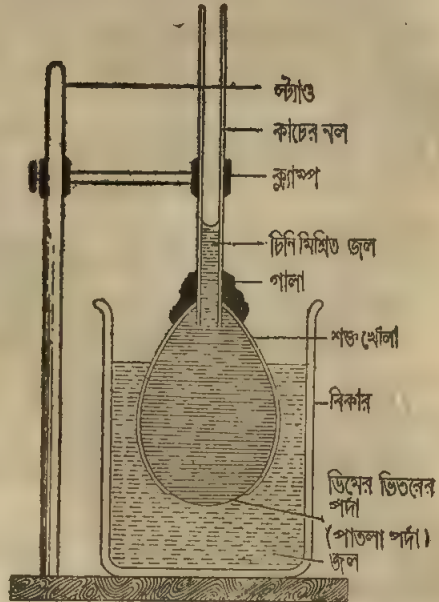 স্ট্যাণ্ড
কাচের নল
ক্ল্যাম্প
চিনি মিশ্রিত জল
গালা
শক্ত খোলা
বিকার
ডিমের ভিতরের
পর্দা
(পাতলা পর্দা)
জল